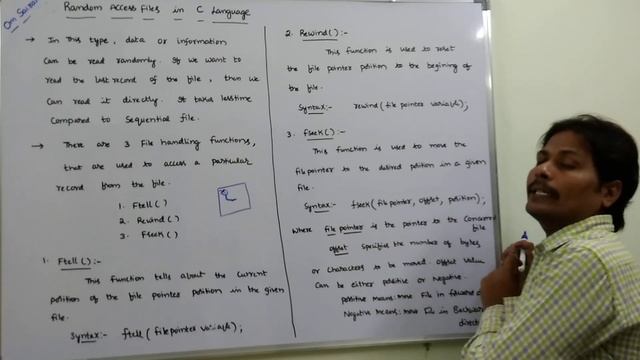 Om Sairam
Random Access Files in C Language
→ In this type, data or information
can be read randomly. If we want to
read the last record of the file, then we
can read it directly. It takes less time
compared to sequential file.
→ There are 3 File handling functions,
that are used to access a particular
record from the file.
1. Ftell()
2. Rewind()
3. Fseek()
1. Ftell() :-
This function tells about the current
position of the file pointer position in the given
file.
Syntax:- ftell(filepointer variable);
2. Rewind() :-
This function is used to reset
the file pointer position to the begining of
the file.
Syntax:- rewind(file pointer variable);
3. fseek() :-
This function is used to move the
file pointer to the desired position in a given
file.
Syntax:- fseek(file pointer, offset, position);
where file pointer is the pointer to the
file
offset specifies the number of bytes
or characters to be moved. offset value
can be either positive or negative.
positive means: move File in forward
Negative means: move File in Backward